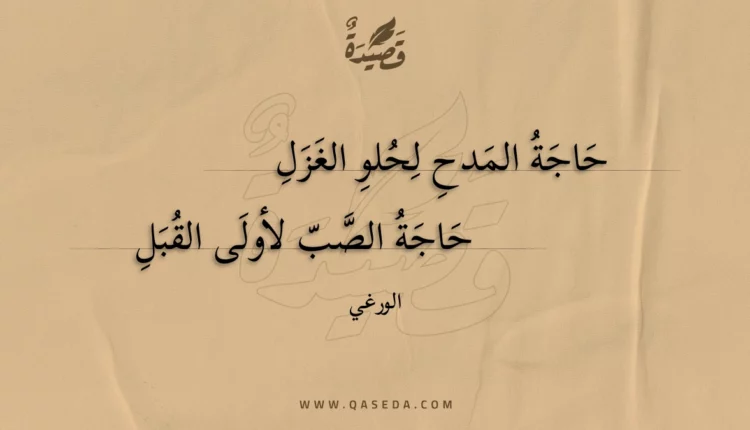 قَصِيدَةٌ
حَاجَةُ المَدحِ لِحُلوِ الغَزَلِ
حَاجَةُ الصَّبّ لأولَى القُبَلِ
الورغي
WWW.QASEDA.COM